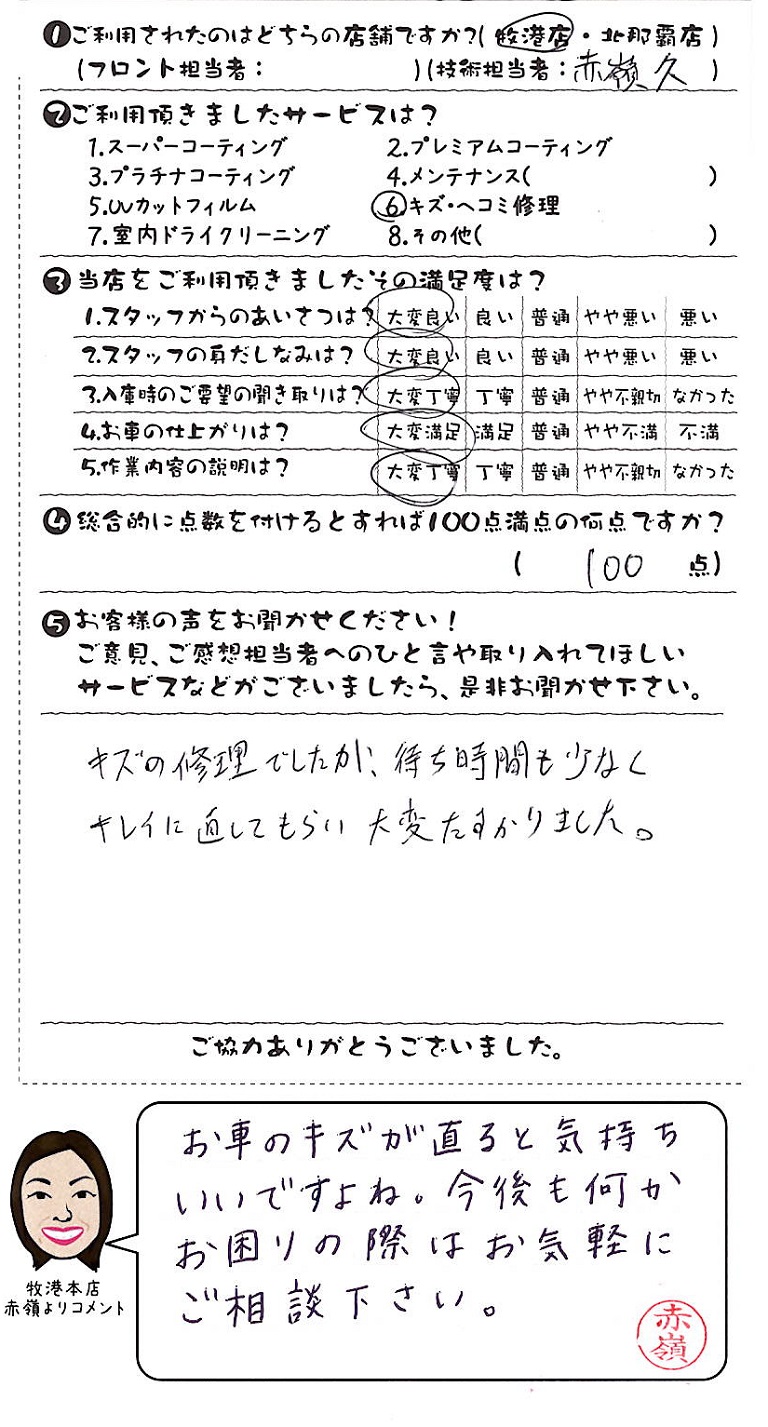 ❶ご利用されたのはどちらの店舗ですか?( 牧港店・北那覇店 )
(フロント担当者: )(技術担当者:赤嶺久 )
❷ご利用頂きましたサービスは?
1.スーパーコーティング 2.プレミアムコーティング
3.プラチナコーティング 4.メンテナンス( )
5.UVカットフィルム 6.キズ・ヘコミ修理
7.室内ドライクリーニング 8.その他( )
❸当店をご利用頂きましたその満足度は?
1.スタッフからのあいさつは? 大変良い 良い 普通 やや悪い 悪い
2.スタッフの身だしなみは? 大変良い 良い 普通 やや悪い 悪い
3.入庫時のご要望の聞き取りは? 大変丁寧 丁寧 普通 やや不親切 なかった
4.お車の仕上がりは? 大変満足 満足 普通 やや不満 不満
5.作業内容の説明は? 大変丁寧 丁寧 普通 やや不親切 なかった
❹総合的に点数を付けるとすれば100点満点の何点ですか?
( 100 点)
❺お客様の声をお聞かせください!
ご意見、ご感想担当者へのひと言や取り入れてほしい
サービスなどがございましたら、是非お聞かせ下さい。
キズの修理でしたが、待ち時間も少なく
キレイに直してもらい大変たすかりました。
ご協力ありがとうございました。
お車のキズが直ると気持ち
いいですよね。今後も何か
お困りの際はお気軽に
ご相談下さい。
赤嶺
牧港本店
赤嶺よりコメント